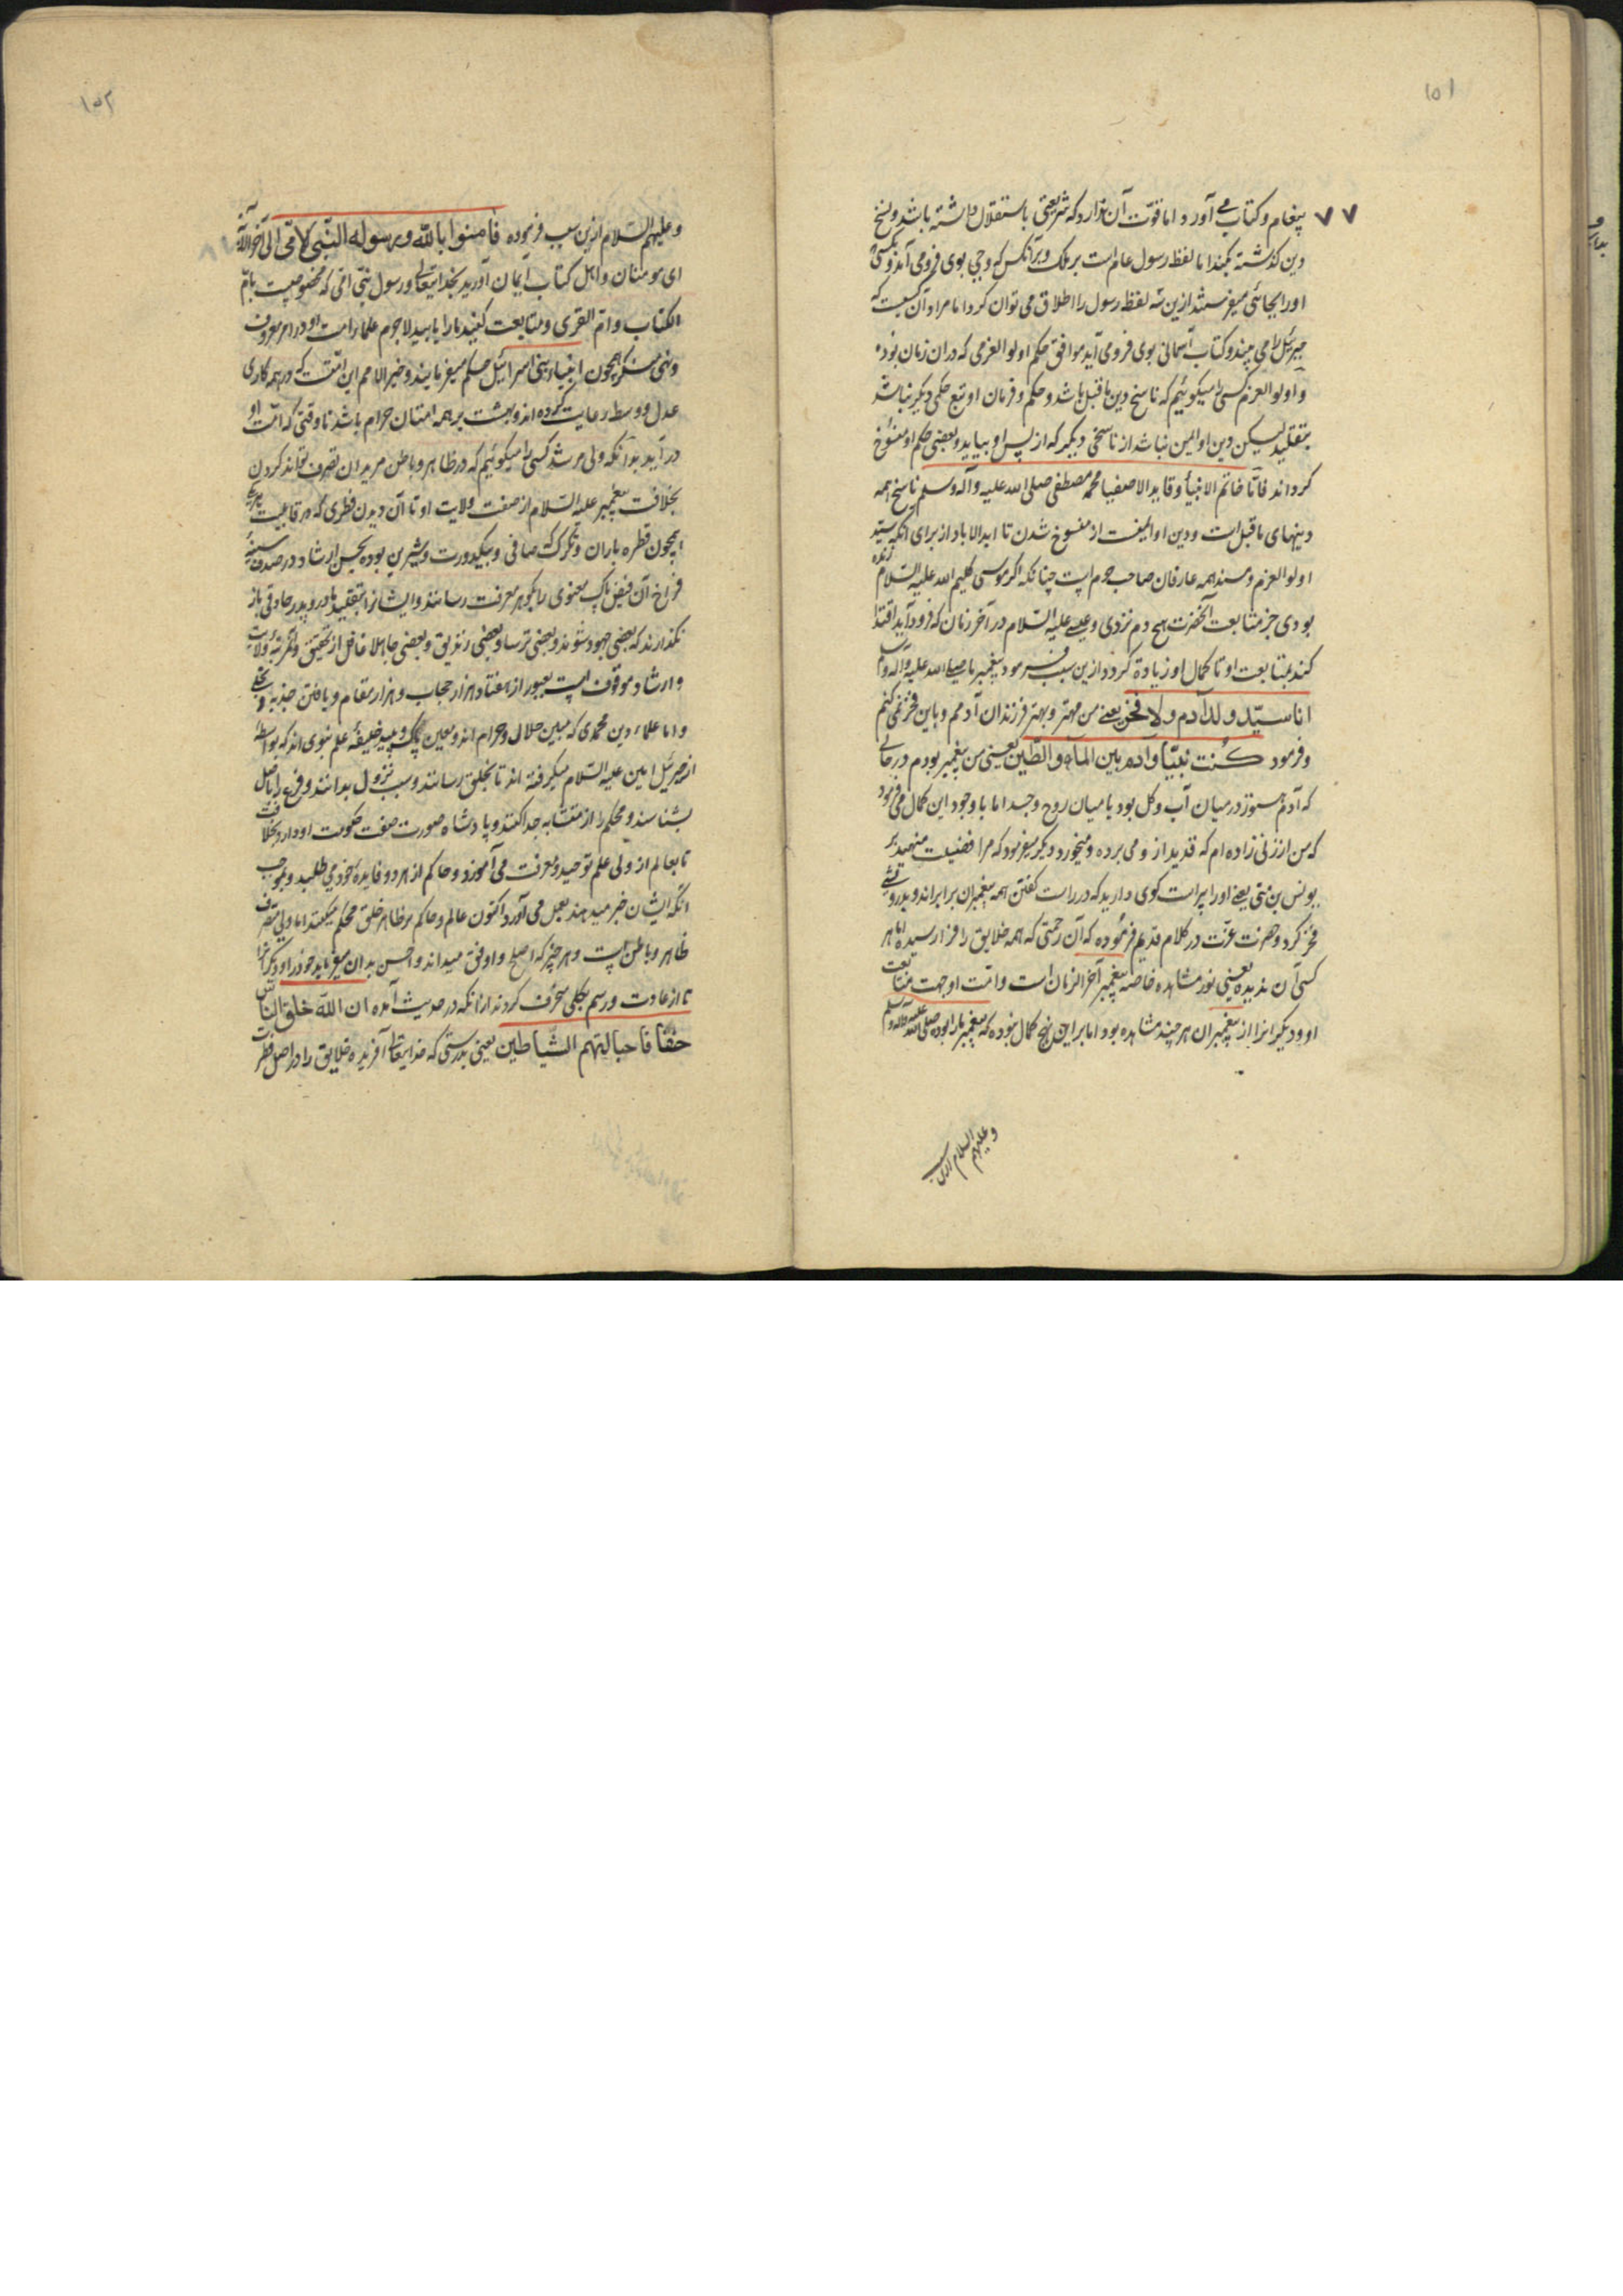 ۱۵۱
۷۷
پیغام و کتاب می آورد و اما قوّت آن ندارد که شریعتی باستقلال داشته باشد و نسخ
دین گذشته بکند اما لفظ رسول عام است بر ملک و بر آنکس که وحی بوی فرومی آید و
او را بجائی میفرستند ازین سه لفظ رسول را اطلاق می توان کرد اما مراد آن کسیست که
جبرئیل را می بیند و کتاب آسمانی بوی فرومی آید موافق حکم اولوالعزمی که در ان زمان بوده
و اولوالعزم کسی را میگوئیم که ناسخ دین ماقبل باشد و حکم و فرمان او تبع حکمی دیگر نباشد
بتقلید لیکن دین او ایمن نباشد از ناسخی دیگر که از پس او بیاید و بعضی حکم او منسوخ
گرداند فامّا خاتم الانبیا و قاید الاصفیا محمد مصطفی صلی الله علیه و آله و سلم ناسخ همه
دینهای ماقبل است و دین او ایمنست از منسوخ شدن تا ابد الاباد از برای انکه سیّد
اولوالعزم و سند همه عارفان صاحب حرم است چنانکه اگر موسی کلیم الله علیه السّلام زنده
بودی جز متابعت آنحضرت هیچ دم نزدی و عیسی علیه السّلام در آخر زمان که فرود آید اقتدا
کند بمتابعت او تا کمال او زیاده گردد ازین سبب فرمود پیغمبر ما صلی الله علیه و آله و سلم
انا سیّد ولد آدم ولا فخر یعنی من مهتر و بهتر فرزندان آدمم و باین فخر نمی کنم
و فرمود کنت نبیّاً و آدم بین المآء و الطّین یعنی من پیغمبر بودم در حالی
که آدم هنوز در میان آب و گل بود یا میان روح و جسد اما با وجود این کمال می فرمود
که من از زنی زاده ام که قدید از و می برده و میخورد و دیگر میفرمود که مرا فضیلت منهید بر
یونس بن متی یعنی او را پیراست گوی دارید که در راست گفتن همه پیغمبران برابراند و بدرویشی
فخر کرد و حضرت عزّت در کلام قدیم فرموده که آن رحمتی که همه خلایق را فرا رسیده اما هر
کسی آن ندیده یعنی نور مشاهده خاصه پیغمبر آخر الزمان است و امّت او جهت متابعت
او و دیگرانرا از پیغمبران هر چند مشاهده بود اما براین نهج کمال نبوده که پیغمبر ما را بوده صلی الله علیه و آله و سلم
و علیهم السلام ازین سبب
۱۵۲
و علیهم السّلام ازین سبب فرموده فامنوا بالله و رسوله النّبی الامّی الی آخر الآیة
ای مومنان و اهل کتاب ایمان آورید بخدایتعالی و رسول نبّی امّی که مخصوصیت بامّ
الکتاب و امّ القری و متابعت کنید تا راه یابید لاجرم علما را امت او در امر معروف
و نهی منکر همچون انبیاء بنی اسرائیل حکم میفرمایند و خیر الامم این امّتست که در همه کاری
عدل و وسط رعایت کرده اند و بهشت بر همه امتان حرام باشد تا وقتی که امّت او
در آید بدانکه ولی مرشد کسی را میگوئیم که در ظاهر و باطن مریدان تصرف تواند کردن
بخلافت پیغمبر علیه السّلام از صفت ولایت او تا آن دیدن فطری که در قابلیت
همچون قطره باران و تگرگ که صافی و بیکدورت و شیرین بوده بحسن ارشاد در صدف سینهٔ
فراخ آن فیض پاک معنوی را بگوهر معرفت رسانند و ایشانرا بتقلید مادر و پدر باز
نگذارند که بعضی جهود شوند و بعضی ترسا و بعضی زندیق و بعضی جاهلا غافل از تحقیق و مرتبهٔ ولایت
و ارشاد موقوف است بعبور از هفتاد هزار حجاب و هزار مقام و یافتن جذبه و تجلی
و اما علماء دین محمدی که مبین حلال و حرام اند و معین پاک و پلید خلیفهٔ علم نبوی اند که بواسطهٔ
از جبرئیل امین علیه السّلام میگرفته اند تا بخلق رسانند و سبب نزول بدانند و فرع را باصل
بشناسند و محکم را از متشابه جدا کنند و پادشاه صورت صفت حکومت او دارد بخلافت
تا بعالم از ولی علم توحید و معرفت می آموزد و حاکم از هر دو فایدهٔ خود می طلبد و بموجب
انکه ایشان خبر میدهند بعمل می آورد اکنون عالم و حاکم بر ظاهر خلق حکم میکنند اما ولی متصرف
ظاهر و باطن است و هر چیز که اصلح و اوفق میداند و احسن بدان میفرماید خود را و دیگرانرا
تا از عادت و رسم بکلی منحرف گردند ازانکه در حدیث آمده ان الله خلق النّاس
حنفا فاحبالتهم الشّیاطین یعنی بدرستی که خدایتعالی آفریده خلایق را در اصل فطرت